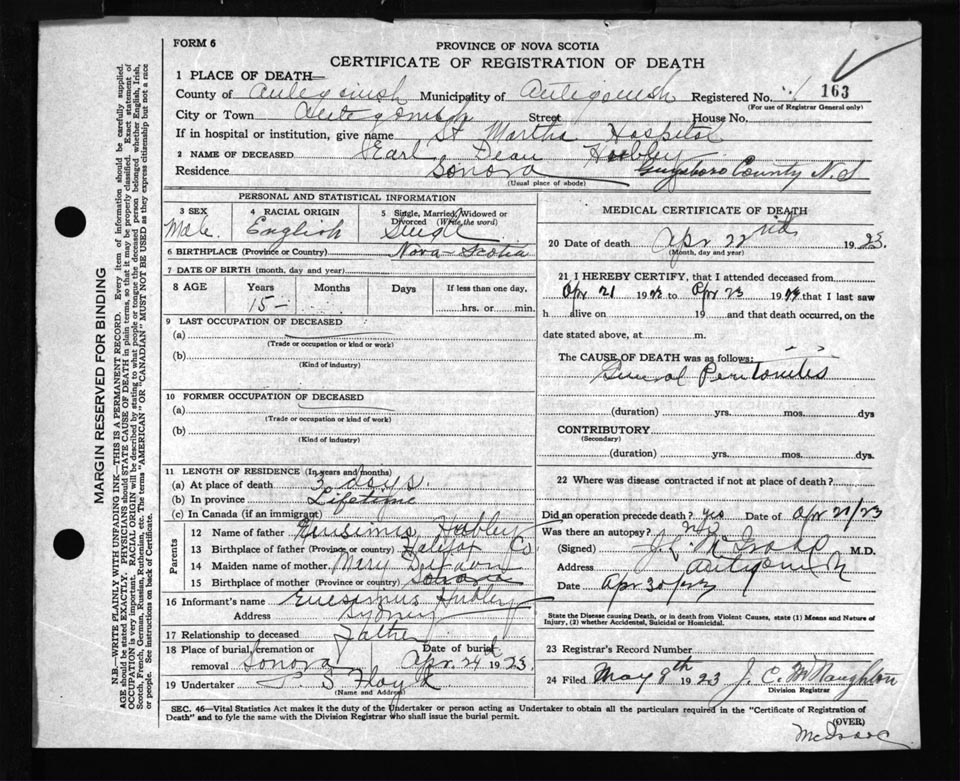 FORM 6
PROVINCE OF NOVA SCOTIA
CERTIFICATE OF REGISTRATION OF DEATH
163
1 PLACE OF DEATH—
County of Antigonish Municipality of Antigonish Registered No.
(For use of Registrar General only)
City or Town Antigonish Street House No.
If in hospital or institution, give name St Martha Hospital
2 NAME OF DECEASED Earl Dean Hubley
Residence Sonora Guysboro County N.S
(Usual place of abode)
PERSONAL AND STATISTICAL INFORMATION
3 SEX Male
4 RACIAL ORIGIN English
5 Single, Married, Widowed or Divorced (Write the word) Single
6 BIRTHPLACE (Province or Country) Nova Scotia
7 DATE OF BIRTH (month, day and year)
8 AGE Years Months Days If less than one day,
15 hrs. or min.
9 LAST OCCUPATION OF DECEASED
(a)
(Trade or occupation or kind or work)
(b)
(Kind of industry)
10 FORMER OCCUPATION OF DECEASED
(a)
(Trade or occupation or kind or work)
(b)
(Kind of industry)
11 LENGTH OF RESIDENCE (In years and months)
(a) At place of death 3 days
(b) In province Lifetime
(c) In Canada (if an immigrant)
Parents
12 Name of father Hubley
13 Birthplace of father (Province or country) Halifax Co
14 Maiden name of mother Mary
15 Birthplace of mother (Province or country) Sonora
16 Informant's name Hubley
Address Sydney
17 Relationship to deceased Father
18 Place of burial, cremation or removal Sonora Date of burial Apr. 24 1923.
19 Undertaker
(Name and Address)
MEDICAL CERTIFICATE OF DEATH
20 Date of death Apr 22nd 1923.
(Month, day and year)
21 I HEREBY CERTIFY, that I attended deceased from
Apr 21 1923 to Apr 23 19 that I last saw
h alive on 19 and that death occurred, on the
date stated above, at m.
The CAUSE OF DEATH was as follows:
General Peritonitis
(duration) yrs. mos. dys
CONTRIBUTORY
(Secondary)
(duration) yrs. mos. dys
22 Where was disease contracted if not at place of death?
Did an operation precede death? yes Date of Apr 21/23
Was there an autopsy? No
(Signed) M.D.
Address Antigonish
Date Apr 30/23
State the Disease causing Death, or in death from Violent Causes, state (1) Means and Nature of Injury, (2) whether Accidental, Suicidal or Homicidal.
23 Registrar's Record Number
24 Filed May 8th 1923 J. C. McNaughton
Division Registrar
SEC. 46—Vital Statistics Act makes it the duty of the Undertaker or person acting as Undertaker to obtain all the particulars required in the "Certificate of Registration of
Death" and to fyle the same with the Division Registrar who shall issue the burial permit.
(OVER)
McIsaac
MARGIN RESERVED FOR BINDING
N.B.—WRITE PLAINLY WITH UNFADING INK—THIS IS A PERMANENT RECORD. Every item of information should be carefully supplied.
AGE should be stated EXACTLY. PHYSICIANS should STATE CAUSE OF DEATH in plain terms, so that it may be properly classified. Exact statement of
OCCUPATION is very important. RACIAL ORIGIN will be described by stating to what people or tongue the deceased person belonged whether English, Irish,
Scotch, French, German, Russian, Ruthenian, etc. The terms "AMERICAN" or "CANADIAN" MUST NOT BE USED as they express citizenship but not a race
or people. See instructions on back of Certificate.